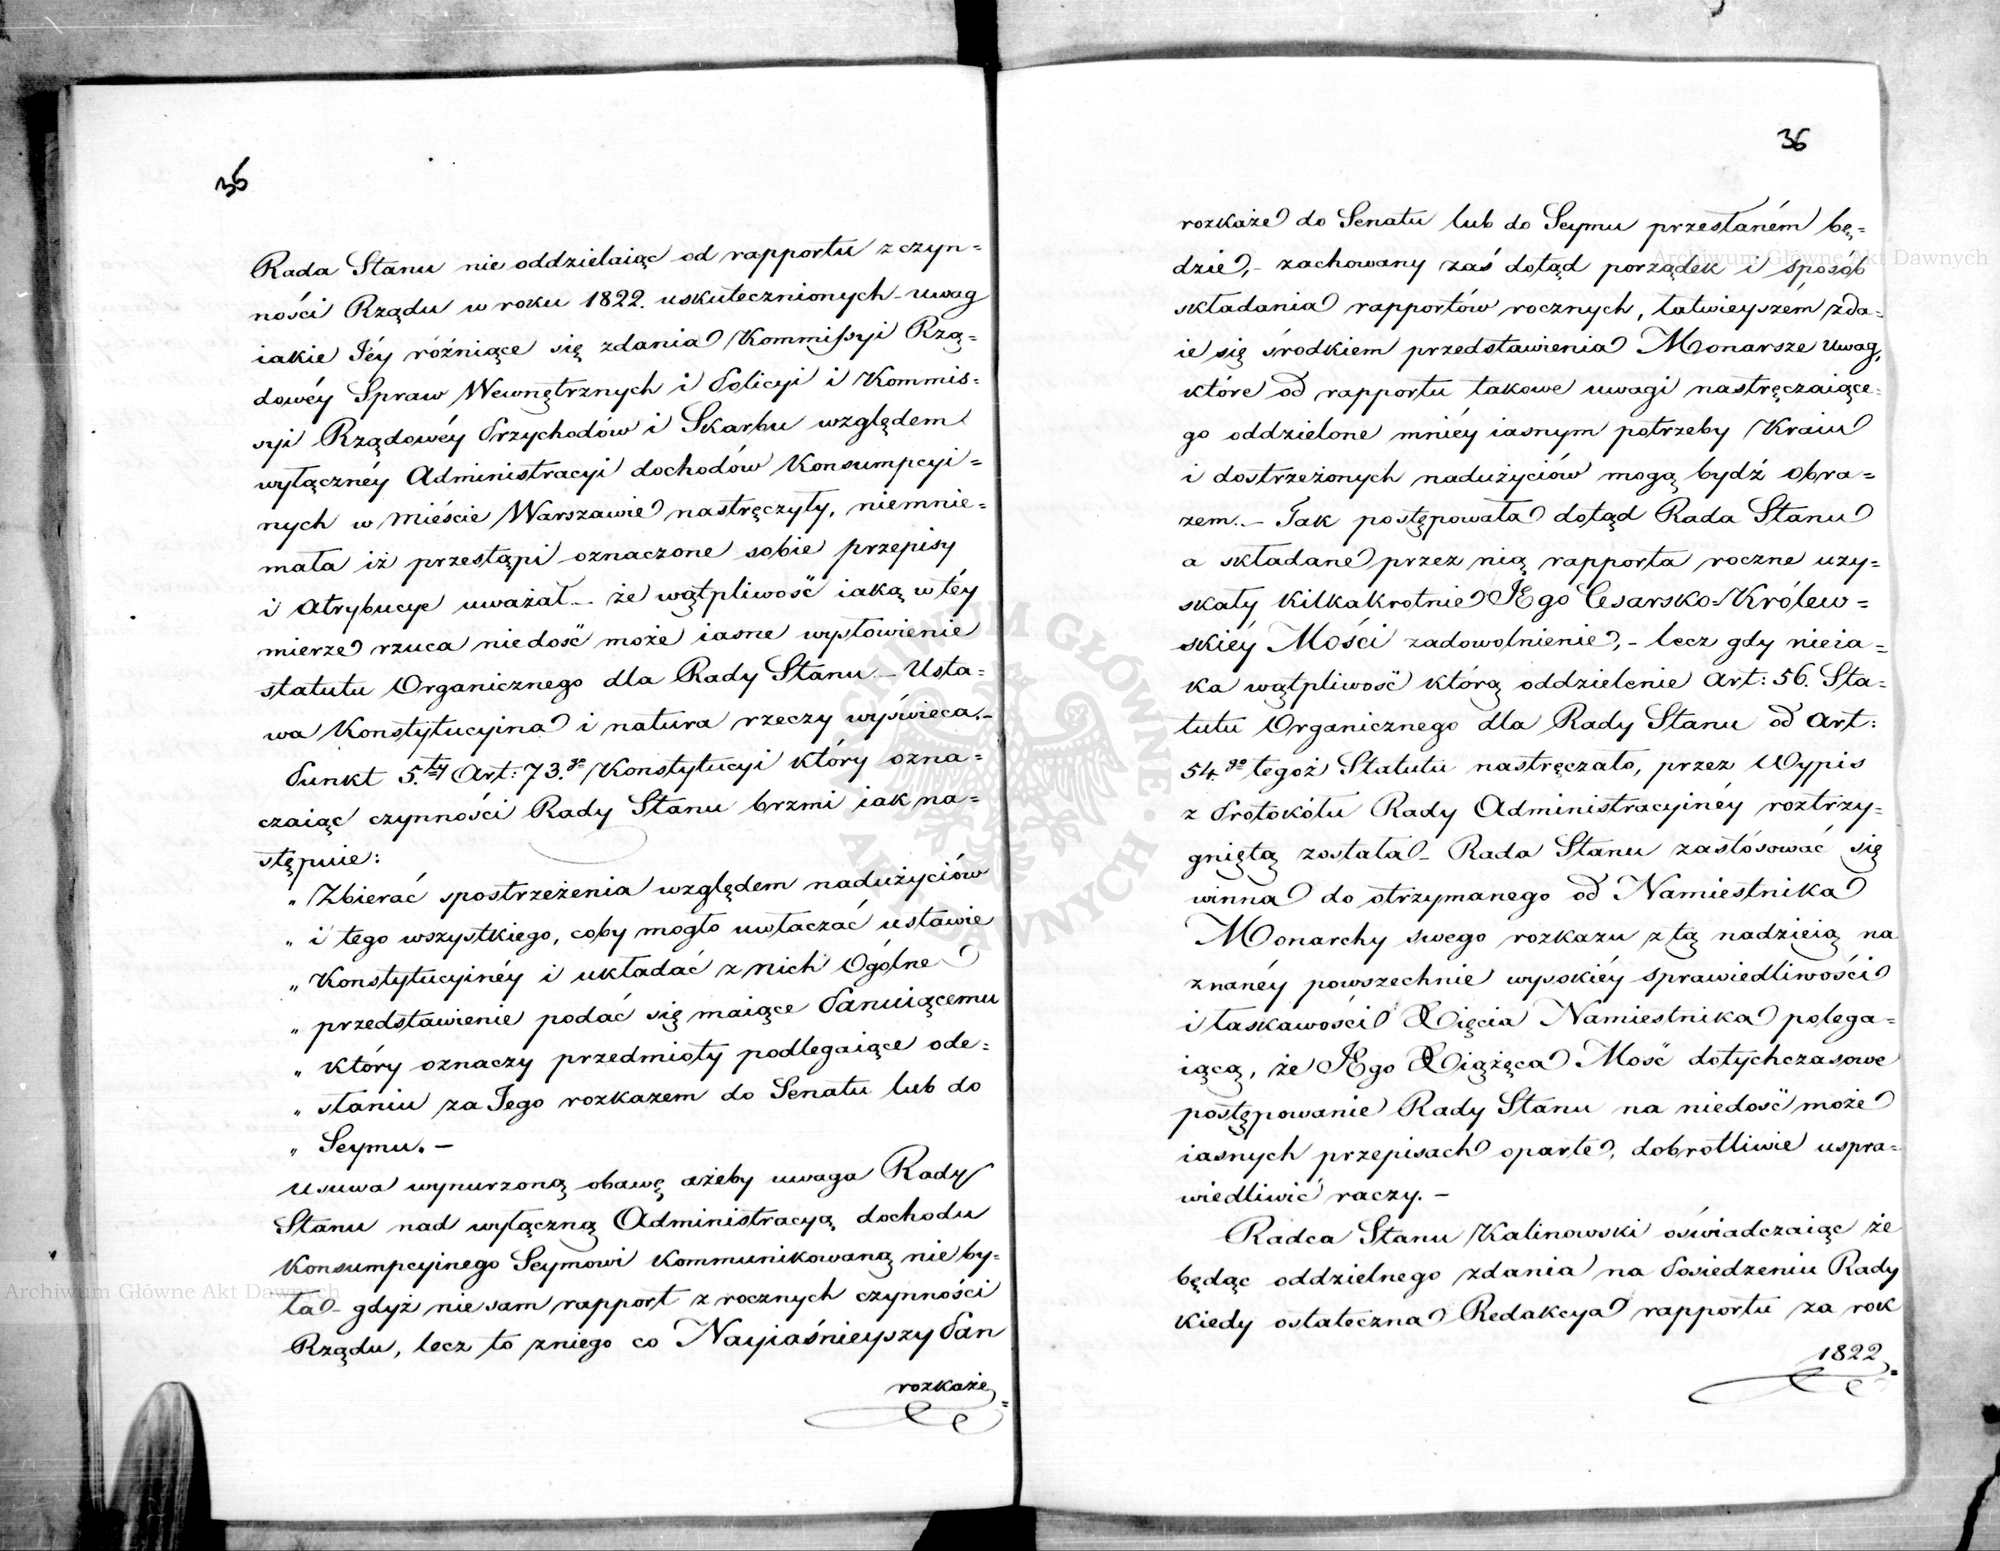 36
Rada Stanu nie oddzielaiąc od rapportu z czyn=
ności Rządu w roku 1822. uskutecznionych uwag
iakie Iéy różniące się zdania Kommissyi Rzą=
dowéy Spraw Wewnętrznych i Policyi i Kommis=
syi Rządowéy Przychodów i Skarbu względem
wyłącznéy Administracyi dochodów Konsumpcyi=
nych w Mieście Warszawie nastręczyły, niemnie=
mała iż przestąpi oznaczone sobie przepisy
i Atrybucye uważał – że wątpliwość iaką w téy
mierze rzuca niedość może iasne wysłowienie
statutu Organicznego dla Rady Stanu – Usta=
wa Konstytucyina i natura rzeczy wyświeca. –
Punkt 5.ty Art: 73.go Konstytucyi który ozna=
czaiąc czynności Rady Stanu brzmi iak na=
stępuie:
„ Zbierać spostrzeżenia względem nadużyciów
„ i tego wszystkiego, coby mogło uwłaczać ustawie
„ Konstytucyinéy i układać z nich Ogólne
„ przedstawienie podać się maiące Panuiącemu
„ który oznaczy przedmioty podlegaiące ode=
„ słaniu za Jego rozkazem do Senatu lub do
„ Seymu. –
usuwa wynurzoną obawę ażeby uwaga Rady
Stanu nad wyłączną Administracyą dochodu
Konsumpcyinego Seymowi kommunikowaną nie by=
ła – gdyż nie sam rapport z rocznych czynności
Rządu, lecz to z niego co Nayiaśnieyszy Pan
rozkaże
36
rozkaże do Senatu lub do Seymu przesłaném bę=
dzie, – zachowany zaś dotąd porządek i sposób
składania rapportów rocznych, łatwieyszém zda=
ie się środkiem przedstawienia Monarsze uwag,
które od rapportu takowe uwagi nastręczaiące=
go oddzielone mniéy iasnym potrzeby Kraiu
i dostrzeżonych nadużyciów mogą bydź obra=
zem. – Tak postępowała dotąd Rada Stanu
a składane przez nią rapporta roczne uzy=
skały kilkakrotnie JEgo Cesarsko-Królew=
skiéy Mości zadowolnienie, – lecz gdy nieia=
ka wątpliwość którą oddzielenie Art: 56. Sta=
tutu Organicznego dla Rady Stanu od Art:
54.go tegoż Statutu nastręczało, przez Wypis
z Protokółu Rady Administracyinéy roztrzy=
gniętą została – Rada Stanu zastósować się
winna do otrzymanego od Namiestnika
Monarchy swego rozkazu z tą nadzieią na
znanéy powszechnie wysokiéy sprawiedliwości
i łaskawości Xięcia Namiestnika polega=
iącą, że JEgo Xiążęca Mość dotychczasowe
postępowanie Rady Stanu na niedość może
iasnych przepisach oparte, dobrotliwie uspra=
wiedliwić raczy. –
Radca Stanu Kalinowski oświadczaiąc że
będąc oddzielnego zdania na Posiedzeniu Rady
kiedy ostateczna Redakcya rapportu za rok
1822
Archiwum Główne Akt Dawnych
Archiwum Główne Akt Dawnych
ARCHIWUM GŁÓWNE AKT DAWNYCH